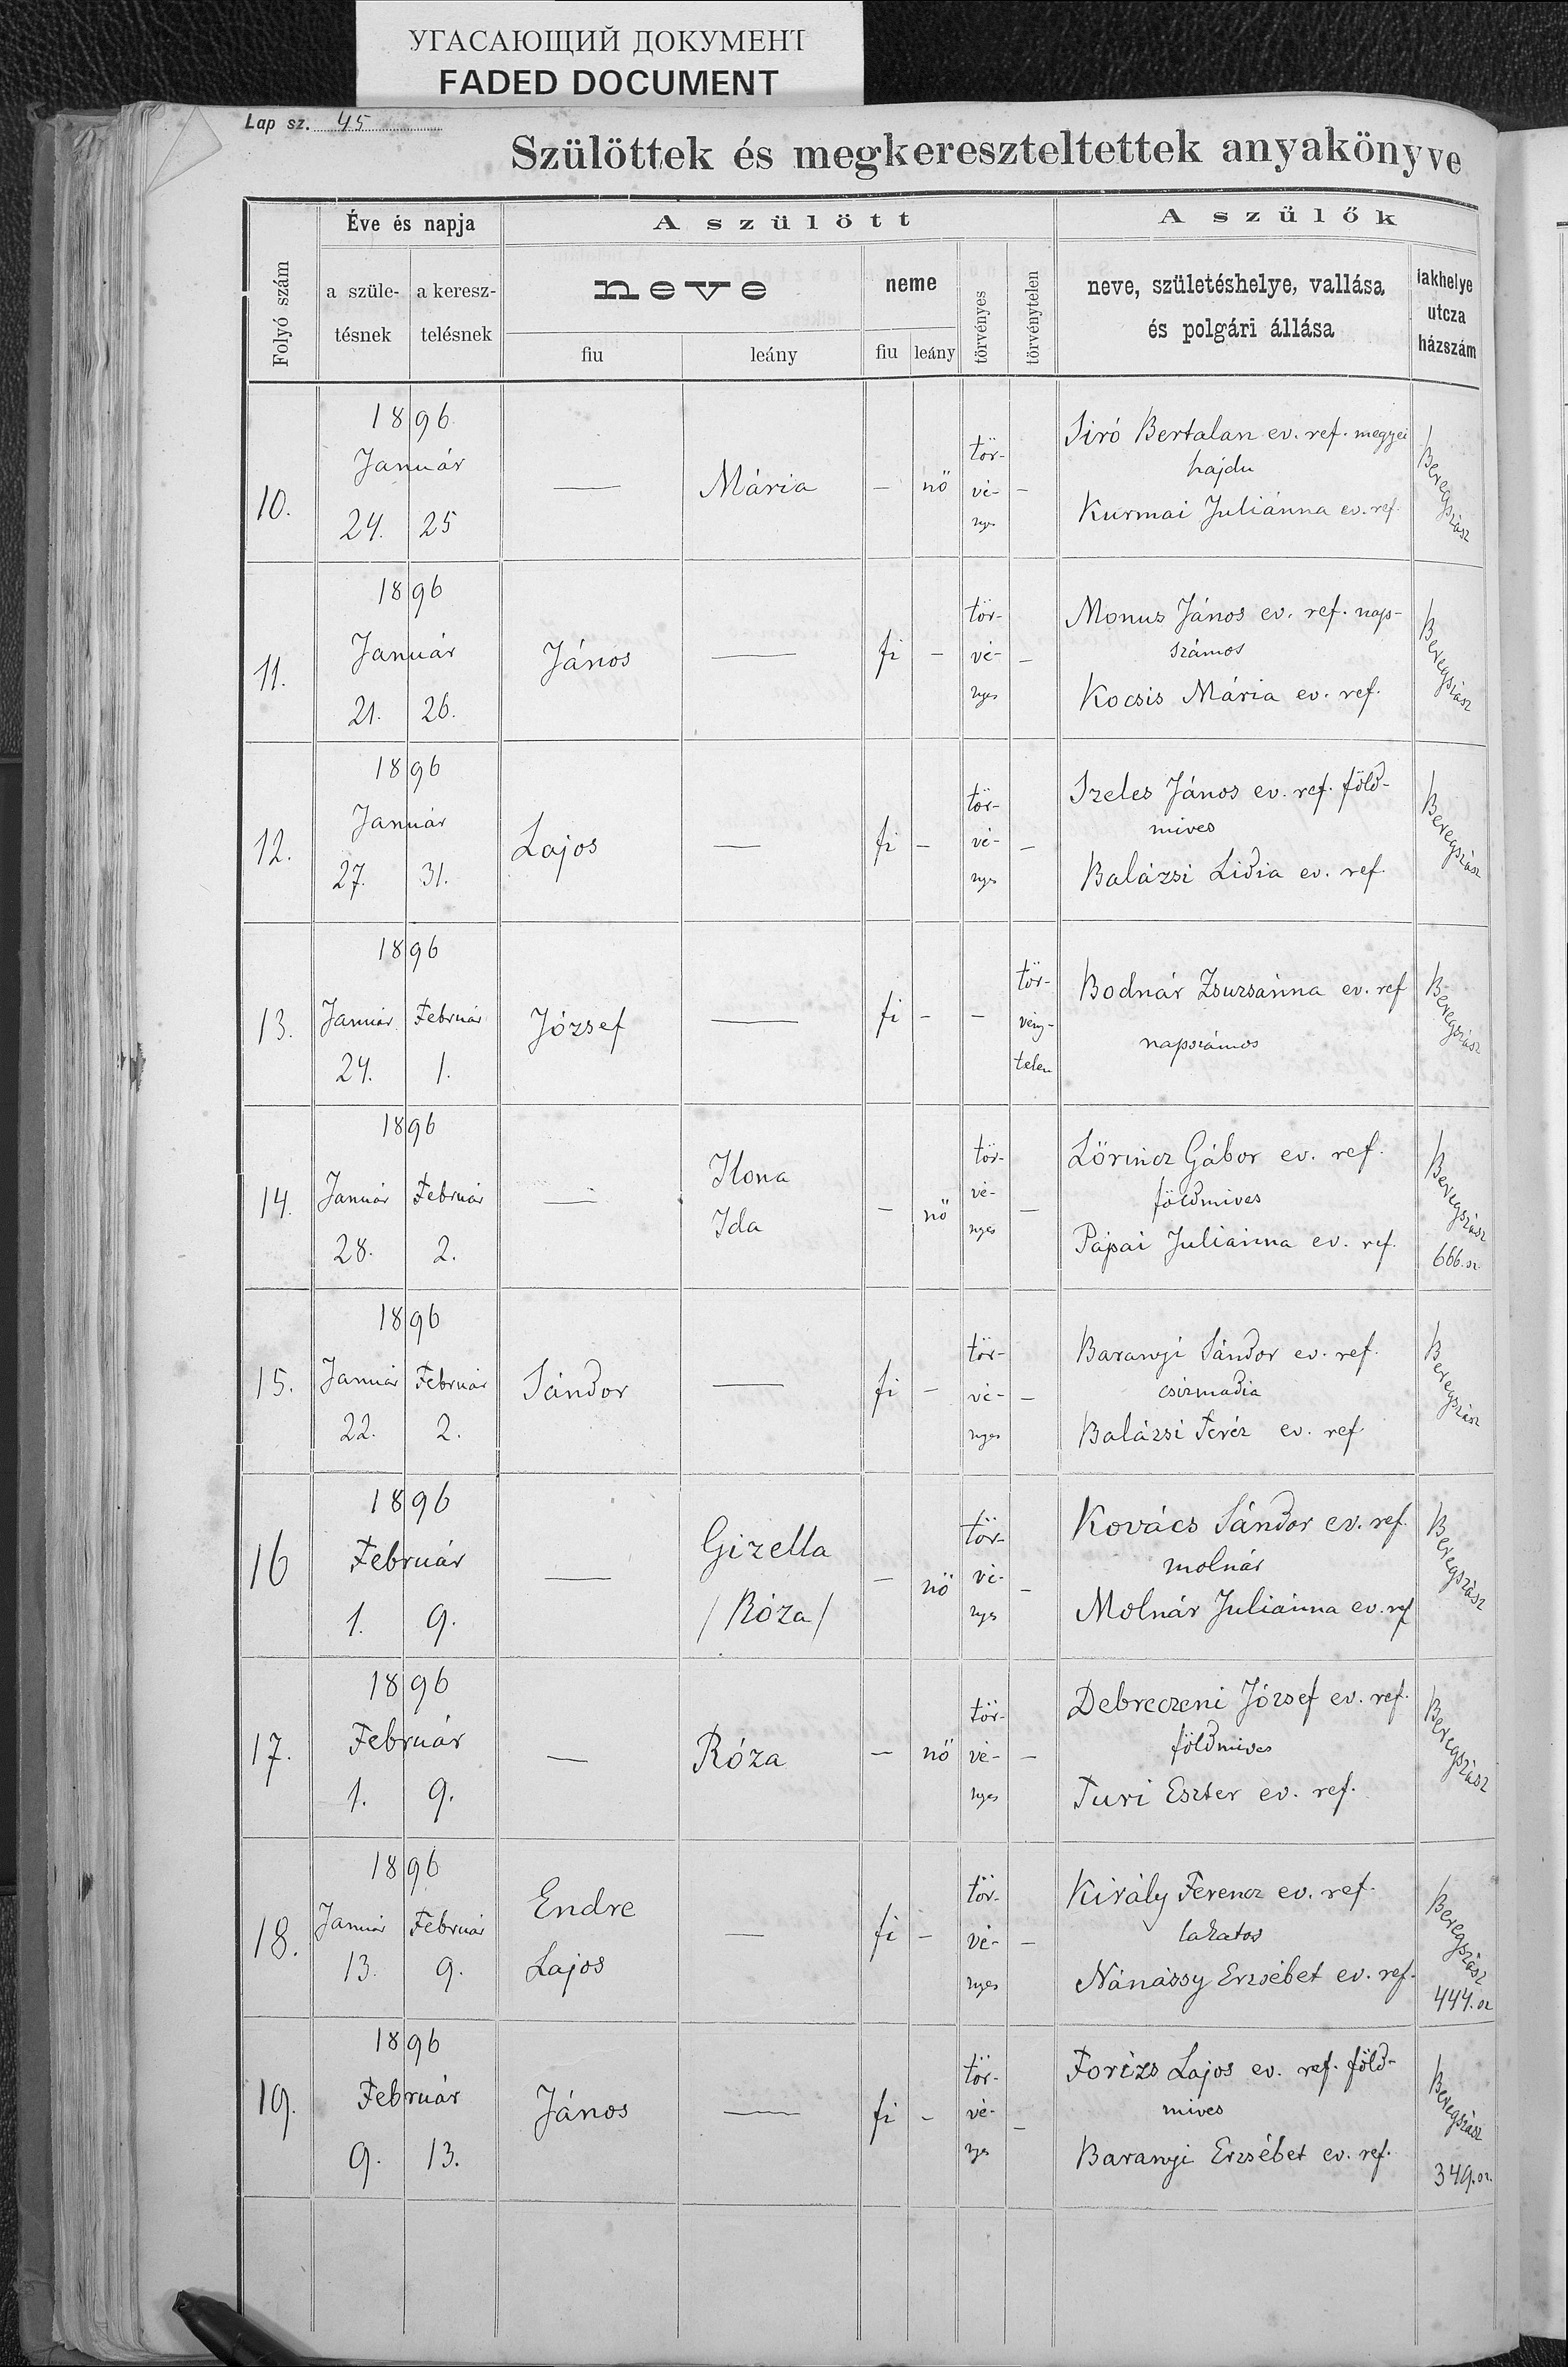 УГАСАЮЩИЙ ДОКУМЕНТ
FADED DOCUMENT
Lap sz. 45
Szülöttek és megkereszteltettek anyakönyve
Folyó szám
Éve és napja
a születésnek
a keresztelésnek
A szülött
neve
fiu
leány
neme
fiu
leány
törvényes
törvénytelen
A szülők
neve, születéshelye, vallása
és polgári állása
lakhelye
utcza
házszám
10. 1896 Január 24. 25 — Mária — nö tör-vé-nyes —
Siró Bertalan ev. ref. megyei
hajdu
Kurmai Juliánna ev. ref.
Beregszász
11. 1896 Január 21. 26. János — fi — tör-vé-nyes —
Monus János ev. ref. nap-
számos
Kocsis Mária ev. ref.
Beregszász
12. 1896 Január 27. 31. Lajos — fi — tör-vé-nyes —
Szeles János ev. ref. föld-
mives
Balázsi Lidia ev. ref.
Beregszász
13. 1896 Január 24. Február 1. József — fi — — tör-vény-telen
Bodnár Zsuzsánna ev. ref
napszámos
Beregszász
14. 1896 Január 28. Február 2. — Ilona Ida — nö tör-vé-nyes —
Lörincz Gábor ev. ref.
földmives
Pápai Juliánna ev. ref.
Beregszász
666. sz.
15. 1896 Január 22. Február 2. Sándor — fi — tör-vé-nyes —
Baranyi Sándor ev. ref.
csizmadia
Balázsi Teréz ev. ref
Beregszász
16 1896 Február 1. 9. — Gizella /Róza/ — nö tör-vé-nyes —
Kovács Sándor ev. ref.
molnár
Molnár Juliánna ev. ref
Beregszász
17. 1896 Február 1. 9. — Róza — nö tör-vé-nyes —
Debreczeni József ev. ref.
földmives
Turi Eszter ev. ref.
Beregszász
18. 1896 Január 13. Február 9. Endre Lajos — fi — tör-vé-nyes —
Király Ferencz ev. ref.
lakatos
Nánássy Erzsébet ev. ref.
Beregszász
444. sz
19. 1896 Február 9. 13. János — fi — tör-vé-nyes —
Forizs Lajos ev. ref. föld-
mives
Baranyi Erzsébet ev. ref.
Beregszász
349. sz.